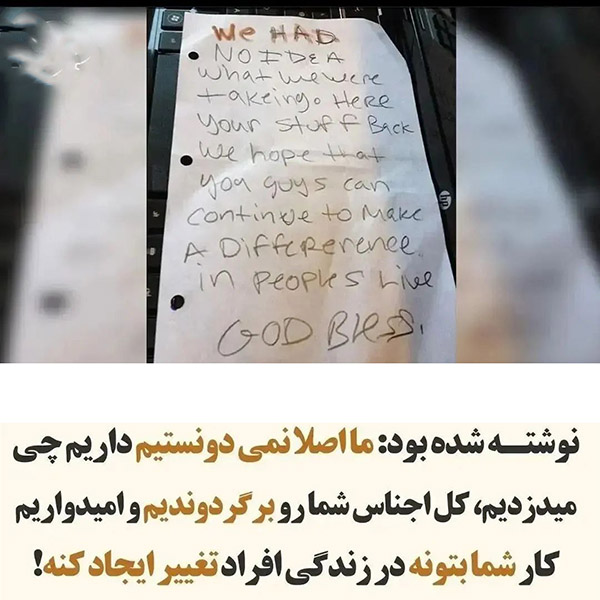 We HAD
NO IDEA
what we were
takeing. Here
Your stuff Back
We hope that
you guys can
continue to Make
A Difference
in peoples Live
GOD Bless.
نوشته شده بود: ما اصلا نمی دونستیم داریم چی
میدزدیم، کل اجناس شما رو برگردوندیم و امیدواریم
کار شما بتونه در زندگی افراد تغییر ایجاد کنه!